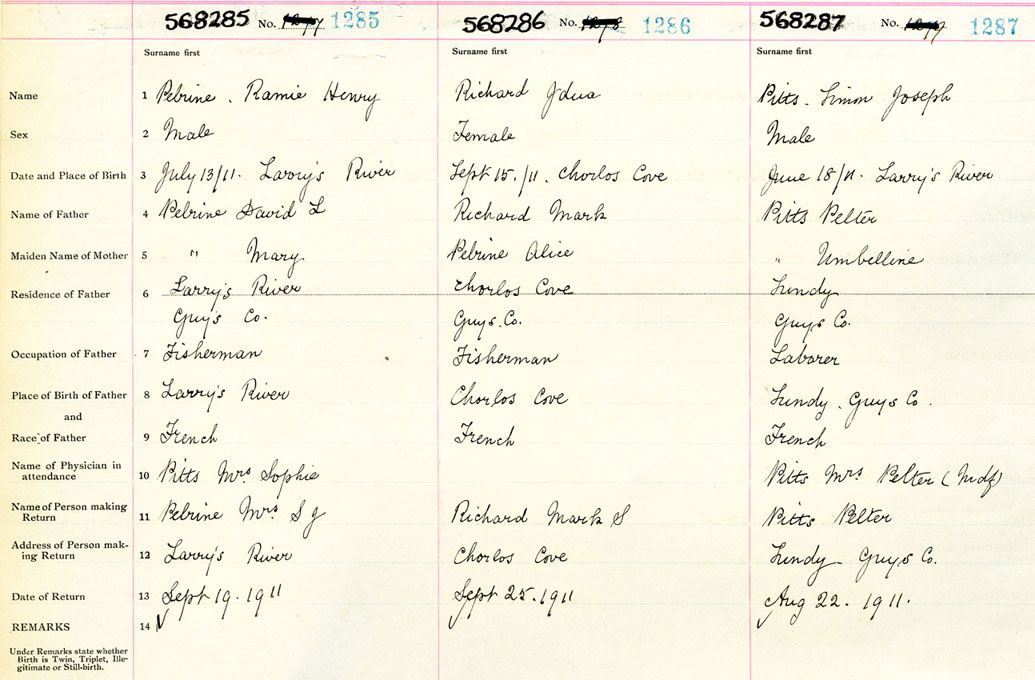 568285 No. 1285 568286 No. 1286 568287 No. 1287
Surname first Surname first Surname first
Name 1 Pelrine. Ramie Henry Richard Pitts. Simon Joseph
Sex 2 Male Female Male
Date and Place of Birth 3 July 13/11. Larry's River Sept 15./11. Chorlos Cove June 18/11. Larry's River
Name of Father 4 Pelrine David L Richard Mark Pitts Pelter
Maiden Name of Mother 5 " Mary Pelrine Alice " Umbelline
Residence of Father 6 Larry's River Chorlos Cove Lundy
Guy's Co. Guys. Co. Guys Co.
Occupation of Father 7 Fisherman Fisherman Laborer
Place of Birth of Father 8 Larry's River Chorlos Cove Lundy. Guys Co.
and
Race of Father 9 French French French
Name of Physician in
attendance 10 Pitts Mrs Sophie Pitts Mrs Pelter (Mdf)
Name of Person making
Return 11 Pelrine Mrs S J Richard Mark S Pitts Pelter
Address of Person mak-
ing Return 12 Larry's River Chorlos Cove Lundy Guys Co.
Date of Return 13 Sept 19. 1911 Sept 25. 1911 Aug 22. 1911.
REMARKS 14
Under Remarks state whether
Birth is Twin, Triplet, Ille-
gitimate or Still-birth.